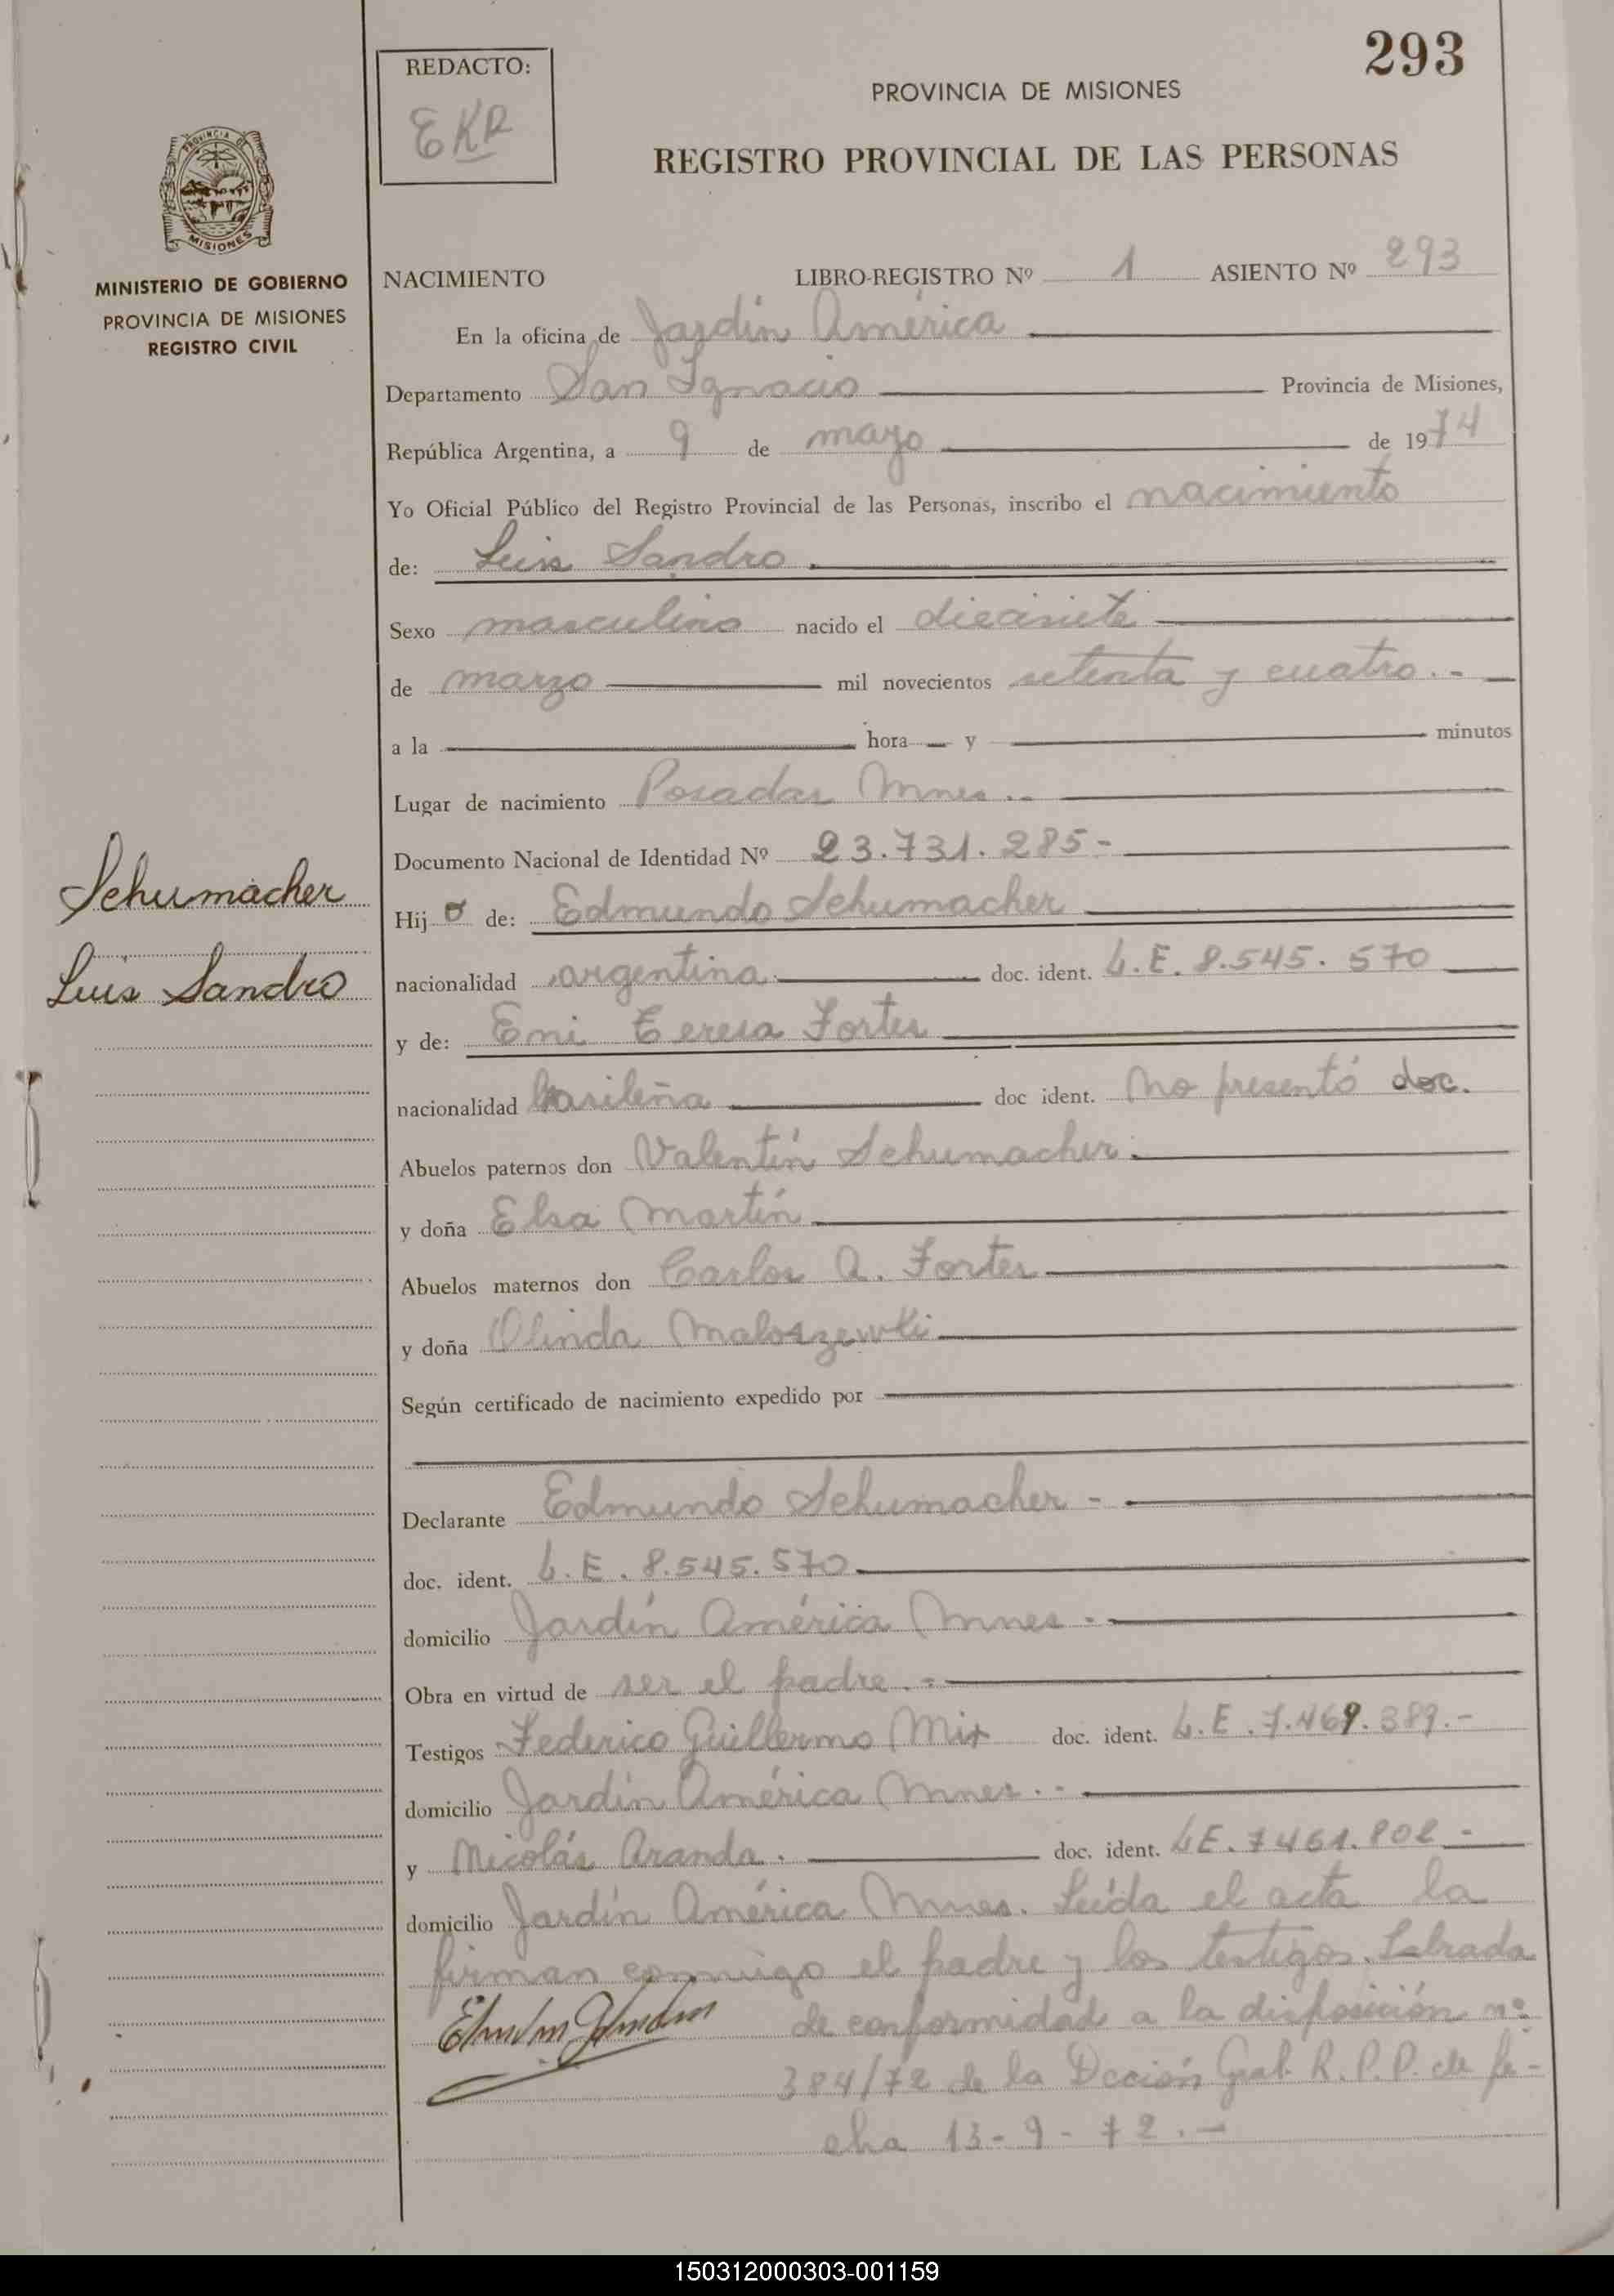 293
REDACTO:
EKR
PROVINCIA DE MISIONES
REGISTRO PROVINCIAL DE LAS PERSONAS
PROVINCIA DE
MISIONES
MINISTERIO DE GOBIERNO
PROVINCIA DE MISIONES
REGISTRO CIVIL
NACIMIENTO LIBRO-REGISTRO Nº 1 ASIENTO Nº 293
En la oficina de Jardín América
Departamento San Ignacio Provincia de Misiones,
República Argentina, a 9 de mayo de 1974
Yo Oficial Público del Registro Provincial de las Personas, inscribo el nacimiento
de: Luis Sandro.
Sexo masculino nacido el diecisiete
de marzo mil novecientos setenta y cuatro.-
a la hora y minutos
Lugar de nacimiento Posadas Mnes..
Documento Nacional de Identidad Nº 23.731.285-
Schumacher
Hijo de: Edmundo Schumacher
Luis Sandro
nacionalidad argentina doc. ident. L.E. 8.545.570
y de: Eni Teresa Fortes
nacionalidad brasileña doc ident. No presentó doc.
Abuelos paternos don Valentín Schumacher.
y doña Elsa Martín
Abuelos maternos don Carlos A. Fortes
y doña Olinda
Según certificado de nacimiento expedido por
Declarante Edmundo Schumacher -
doc. ident. L.E. 8.545.570.
domicilio Jardín América Mnes -
Obra en virtud de ser el padre.-
Testigos Federico Guillermo Mix doc. ident. L.E. 7.469.389.-
domicilio Jardín América Mnes.-
y Nicolás Aranda. doc. ident. LE. 7461.802 -
domicilio Jardín América Mnes. Leída el acta la
firman conmigo el padre y los testigos. Labrada
de conformidad a la disposición nº
384/72 de la Dcción Gral. R.P.P. de fe-
cha 13-9-72.-
150312000303-001159